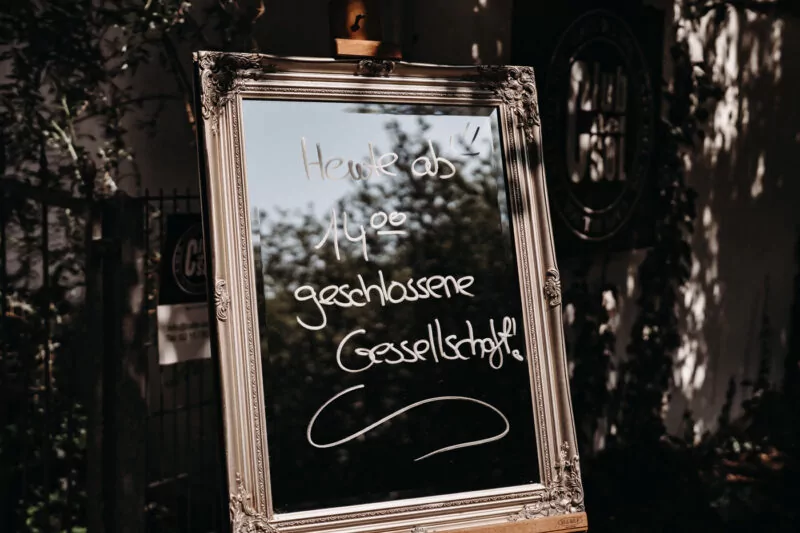 Heute ab
14 00
geschlossene
Gessellschaft!